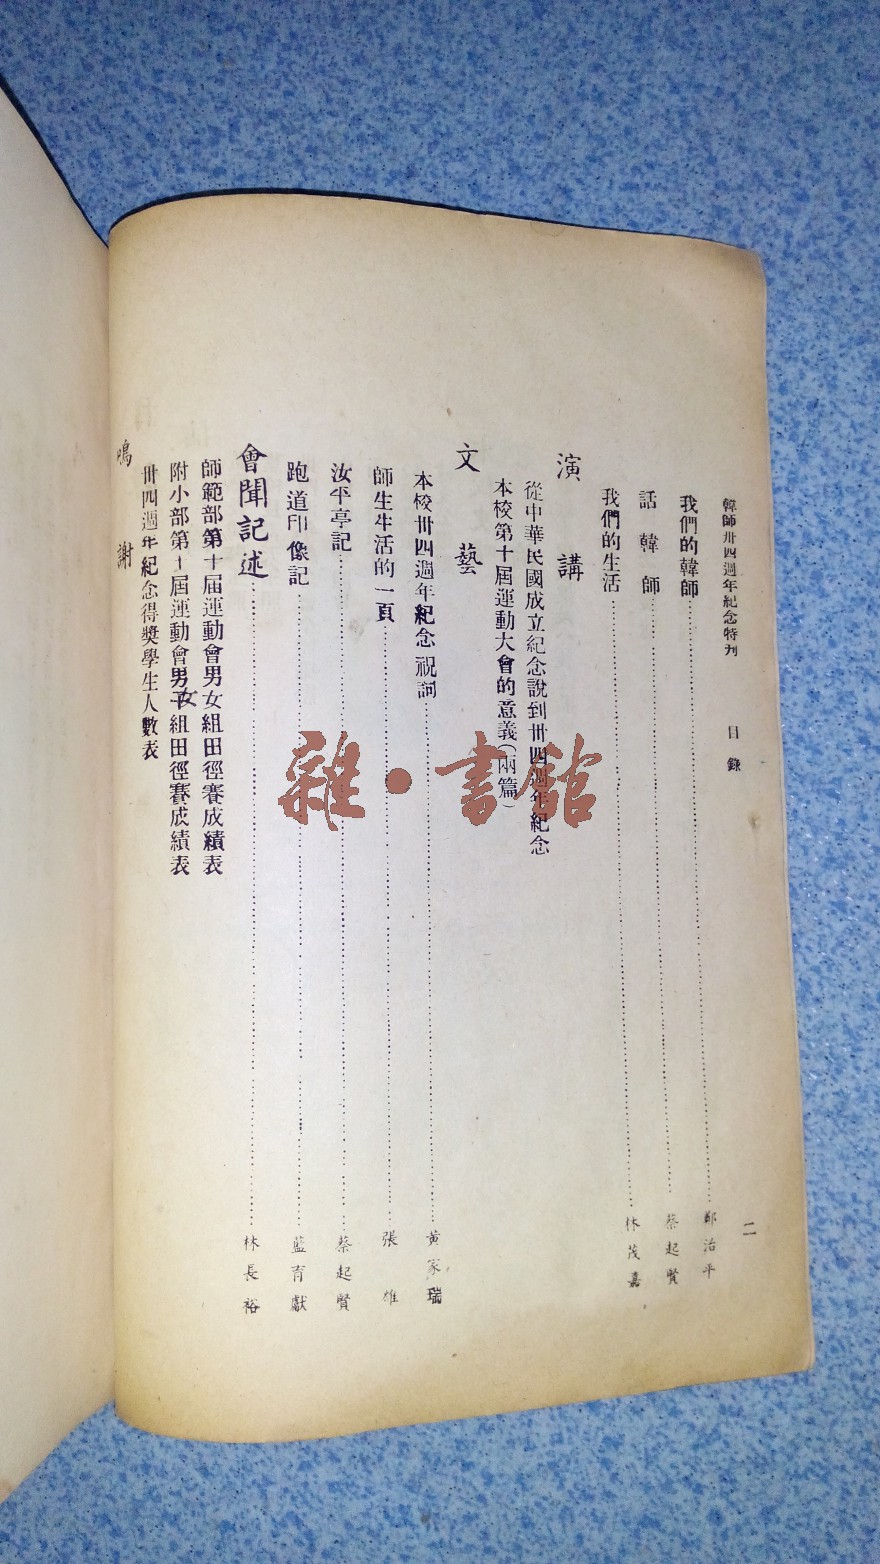 韓師卅四週年紀念特刋　目錄　二
我們的韓師……鄭治平
話韓師……蔡起賢
我們的生活……林茂嘉
演講
從中華民國成立紀念說到卅四週年紀念
本校第十屆運動大會的意義（兩篇）
文藝
本校卅四週年紀念祝詞……黃家瑞
師生生活的一頁……張雄
汝平亭記……蔡起賢
跑道印像記……藍育獻
會聞記述……林長裕
師範部第十屆運動會男女組田徑賽成績表
附小部第十屆運動會男女子組田徑賽成績表
卅四週年紀念得獎學生人數表
鳴謝
雜·書館